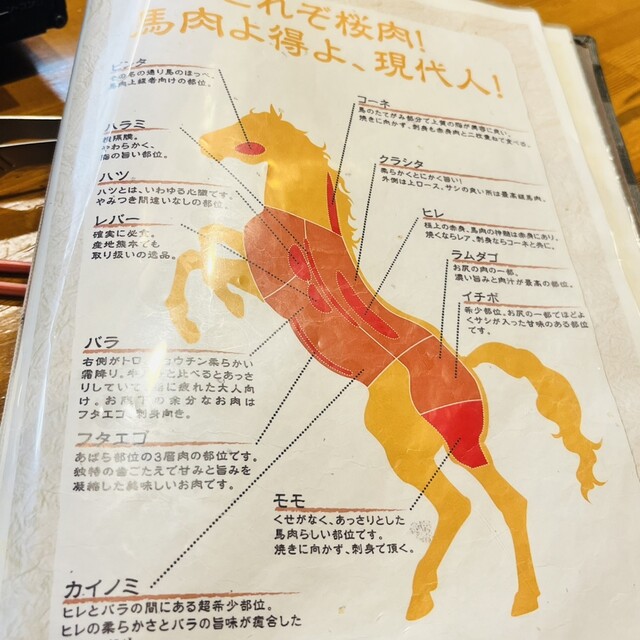 これぞ桜肉!
馬肉よ得よ、現代人!
馬肉上級者向けの部位。
ハラミ
横隔膜。
やわらかく、
旨い部位。
ハツ
ハツとは、いわゆる心臓です。
やみつき間違いなしの部位。
レバー
確実に必食。
産地熊本でも
取り扱いの逸品。
バラ
右側がトロ
霜降り。
りしていて
け。お
フタエゴ、刺身向き。
フタエゴ
あばら部位の3層肉の部位です。
独特の歯ごたえで甘みと旨みを
凝縮した美味しいお肉です。
カイノミ
ヒレとバラの間にある超希少部位。
ヒレの柔らかさとバラの旨味が複合した
コーネ
馬のたてがみ部分で上質の脂が美容に良い。
焼きに向かず、刺身も赤身肉と二枚重ねで食べる。
クラシタ
柔らかくとにかく旨い!
外側は上ロース。サシの良い所は最高級馬肉。
ヒレ
極上の赤身、馬肉の神髄は赤身にあり。
焼くならレア、刺身ならコーネと共に。
ラムダゴ
お尻の肉の一部。
濃い旨みと肉汁が最高の部位。
イチボ
希少部位。お尻の一部でほどよ
くサシが入った甘味のある部位
です。
モモ
くせがなく、あっさりとした
馬肉らしい部位です。
焼きに向かず、刺身で頂く。